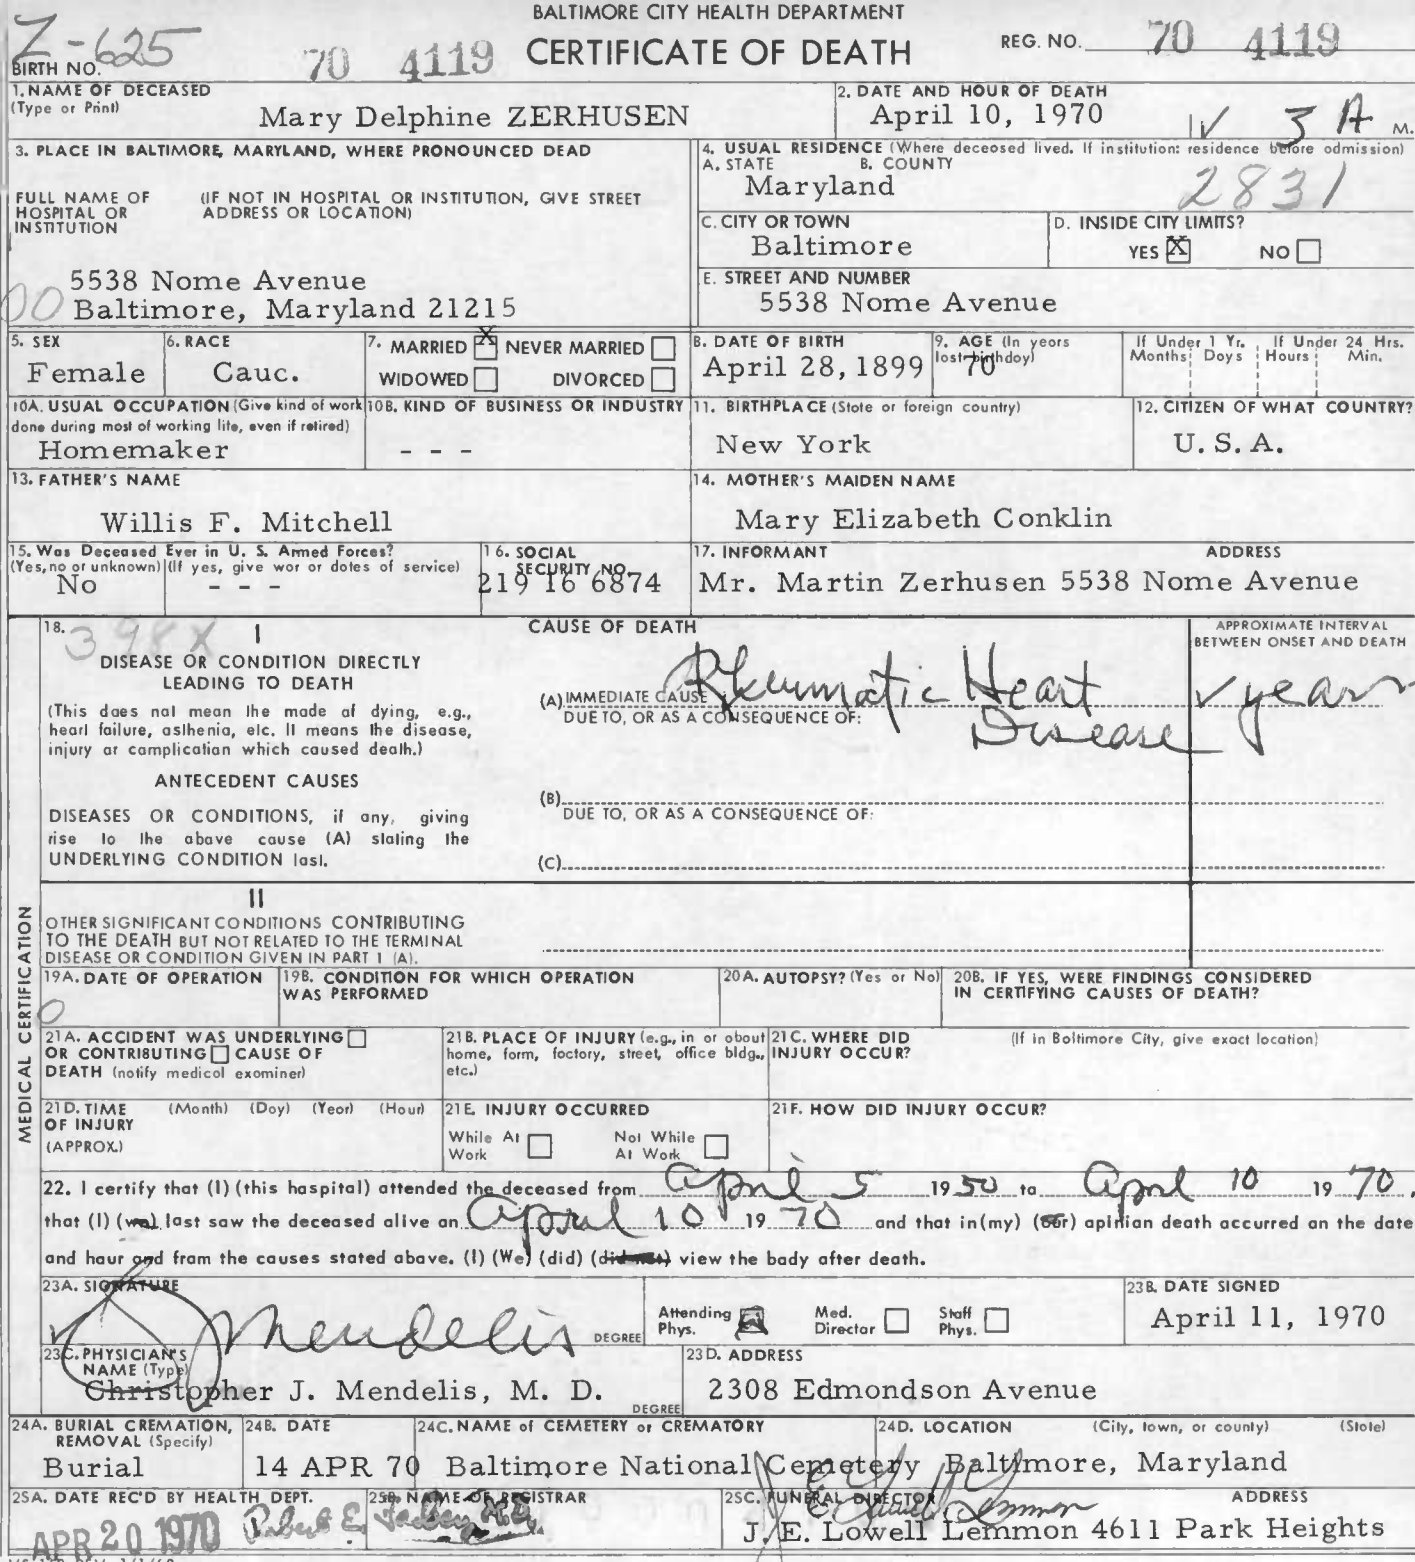 BALTIMORE CITY HEALTH DEPARTMENT
CERTIFICATE OF DEATH
Z-625
BIRTH NO.
70 4119
REG. NO. 70 4119
1. NAME OF DECEASED
(Type or Print)
Mary Delphine ZERHUSEN
2. DATE AND HOUR OF DEATH
April 10, 1970
3 A M.
3. PLACE IN BALTIMORE, MARYLAND, WHERE PRONOUNCED DEAD
FULL NAME OF HOSPITAL OR INSTITUTION
(IF NOT IN HOSPITAL OR INSTITUTION, GIVE STREET ADDRESS OR LOCATION)
5538 Nome Avenue
00
Baltimore, Maryland 21215
4. USUAL RESIDENCE (Where deceased lived. If institution: residence before admission)
A. STATE B. COUNTY
Maryland
2831
C. CITY OR TOWN
Baltimore
D. INSIDE CITY LIMITS?
YES X NO
E. STREET AND NUMBER
5538 Nome Avenue
5. SEX
Female
6. RACE
Cauc.
7. MARRIED X NEVER MARRIED
WIDOWED DIVORCED
8. DATE OF BIRTH
April 28, 1899
9. AGE (In years last birthday)
70
If Under 1 Yr. Months Days
If Under 24 Hrs. Hours Min.
10A. USUAL OCCUPATION (Give kind of work done during most of working life, even if retired)
Homemaker
10B. KIND OF BUSINESS OR INDUSTRY
- - -
11. BIRTHPLACE (State or foreign country)
New York
12. CITIZEN OF WHAT COUNTRY?
U. S. A.
13. FATHER'S NAME
Willis F. Mitchell
14. MOTHER'S MAIDEN NAME
Mary Elizabeth Conklin
15. Was Deceased Ever in U. S. Armed Forces?
(Yes, no or unknown) (If yes, give war or dates of service)
No - - -
16. SOCIAL SECURITY NO.
219 16 6874
17. INFORMANT ADDRESS
Mr. Martin Zerhusen 5538 Nome Avenue
MEDICAL CERTIFICATION
18. 398X
I
DISEASE OR CONDITION DIRECTLY
LEADING TO DEATH
(This does not mean the mode of dying, e.g.,
heart failure, asthenia, etc. It means the disease,
injury or complication which caused death.)
ANTECEDENT CAUSES
DISEASES OR CONDITIONS, if any, giving
rise to the above cause (A) stating the
UNDERLYING CONDITION last.
CAUSE OF DEATH
APPROXIMATE INTERVAL
BETWEEN ONSET AND DEATH
(A) IMMEDIATE CAUSE Rheumatic Heart Disease years
DUE TO, OR AS A CONSEQUENCE OF:
(B)
DUE TO, OR AS A CONSEQUENCE OF:
(C)
II
OTHER SIGNIFICANT CONDITIONS CONTRIBUTING
TO THE DEATH BUT NOT RELATED TO THE TERMINAL
DISEASE OR CONDITION GIVEN IN PART 1 (A).
19A. DATE OF OPERATION
0
19B. CONDITION FOR WHICH OPERATION
WAS PERFORMED
20A. AUTOPSY? (Yes or No)
20B. IF YES, WERE FINDINGS CONSIDERED
IN CERTIFYING CAUSES OF DEATH?
21A. ACCIDENT WAS UNDERLYING
OR CONTRIBUTING CAUSE OF
DEATH (notify medical examiner)
21B. PLACE OF INJURY (e.g., in or about
home, farm, factory, street, office bldg.,
etc.)
21C. WHERE DID
INJURY OCCUR?
(If in Baltimore City, give exact location)
21D. TIME
OF INJURY
(APPROX.)
(Month) (Day) (Year) (Hour)
21E. INJURY OCCURRED
While At Work
Not While At Work
21F. HOW DID INJURY OCCUR?
22. I certify that (I) (this hospital) attended the deceased from April 5 1950 to April 10 1970,
that (I) (we) last saw the deceased alive on April 10 1970 and that in (my) (our) opinion death accurred on the date
and hour and from the causes stated above. (I) (We) (did) (did not) view the body after death.
23A. SIGNATURE
Mendelis
DEGREE
Attending Phys.
Med. Director
Staff Phys.
23B. DATE SIGNED
April 11, 1970
23C. PHYSICIAN'S
NAME (Type)
Christopher J. Mendelis, M. D.
DEGREE
23D. ADDRESS
2308 Edmondson Avenue
24A. BURIAL CREMATION,
REMOVAL (Specify)
Burial
24B. DATE
14 APR 70
24C. NAME of CEMETERY or CREMATORY
Baltimore National Cemetery
24D. LOCATION (City, town, or county) (State)
Baltimore, Maryland
25A. DATE REC'D BY HEALTH DEPT.
APR 20 1970
25B. NAME OF REGISTRAR
Robert E.
25C. FUNERAL DIRECTOR ADDRESS
J. E. Lowell Lemmon 4611 Park Heights